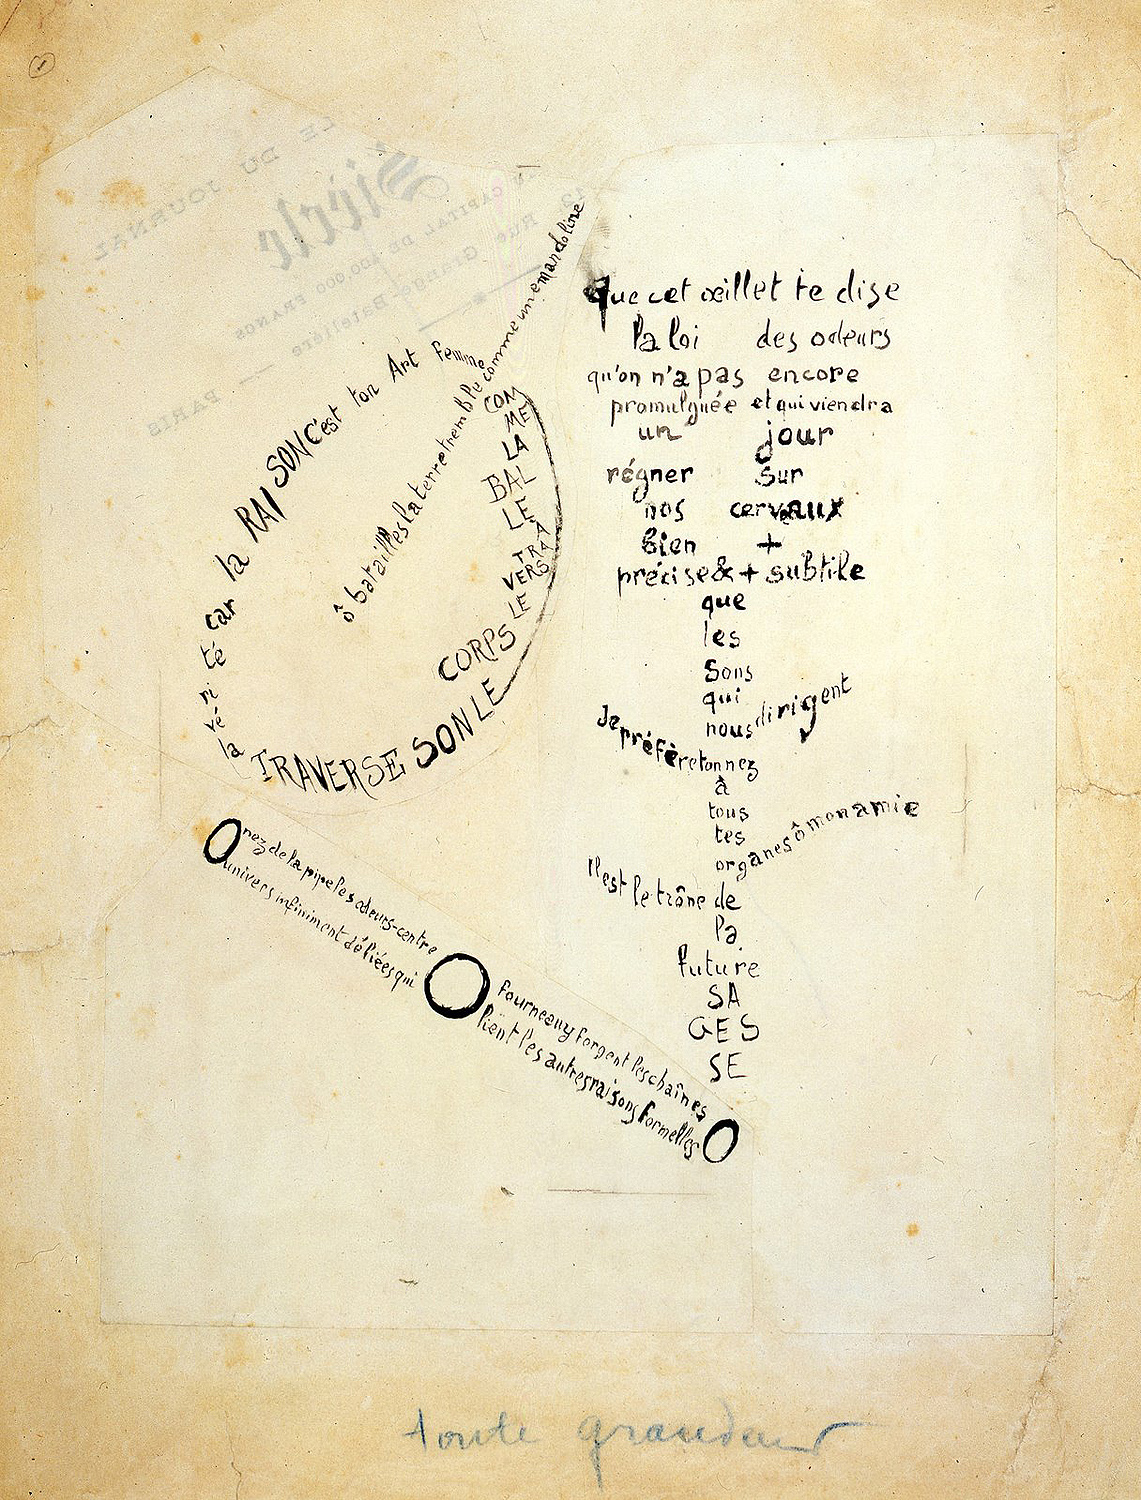 ô batailles la terre tremble comme une mandoline
COM
ME
LA
BAL
LE
À
TRA
VERS
LE
CORPS
LE
SON
TRAVERSE
la
vé
ri
té
car
la
RAI
SON
C'est
ton
Art
Femme
que cet œillet te dise
la loi des odeurs
qu'on n'a pas encore
promulguée et qui viendra
un jour
régner sur
nos cerveaux
bien +
précise & + subtile
que
les
sons
qui
nous dirigent
Je préfère ton nez
à
tous
tes
organes ô mon amie
Il est le trône de
la
future
SA
GES
SE
O nez de la pipe les odeurs-centre O fourneau y forgent les chaînes O
univers infiniment déliées qui lient les autres raisons formelles
LE DU JOURNAL
Siècle
CAPITAL DE 100.000 FRANCS
Rue Grange-Batelière
PARIS
toute grandeur